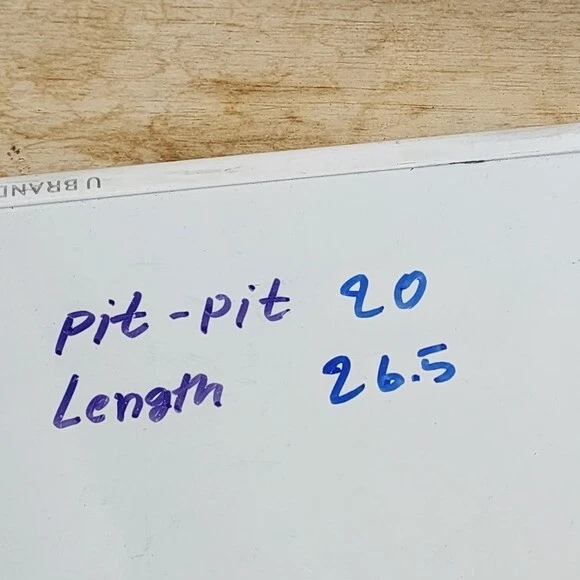 U BRAND
pit-pit 20
Length 26.5